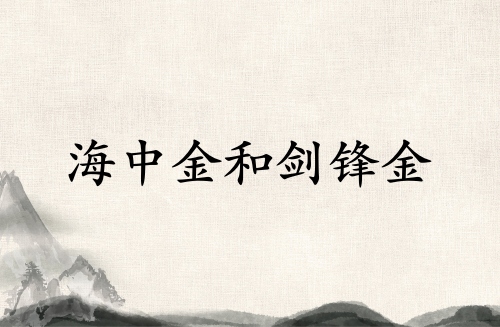 海中金和剑锋金